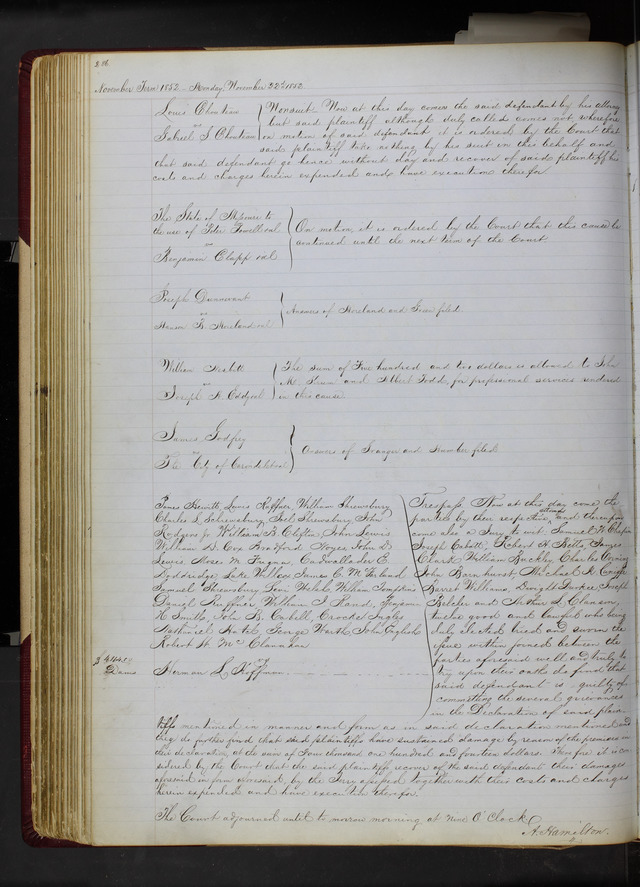 206
November Term 1852 - Monday, November 22d 1852
Louis Chouteau
vs
Gabriel S Chouteau
Nonsuit Now at this day comes the said defendant by his attorney
but said plaintiff although duly called comes not, wherefore
on motion of said defendant it is ordered by the Court that
said plaintiff take nothing by his suit in this behalf and
that said defendant go hence without day and recover of said plaintiff his
costs and charges herein expended and have execution therefor
The State of Missouri to
the use of Peter Powell et al
vs
Benjamin Clapp et al
On motion it is ordered by the Court that this cause be
continued until the next term of the Court
Joseph Dunnavant
vs
et al
Answers of Moreland and filed
William Nesbitt
vs
Joseph et al
The sum of Five hundred and two dollars is allowed to John
M. and Albert Todd, for professional services rendered
in this cause
James Godfrey
vs
The City of Carondelet et al
Answers of Granger and filed
James Hewitt, Lewis Ruffner, William Shrewsbury
Charles L Shrewsbury, Joel Shrewsbury, John
Rodgers Jr William B. Clifton, John Lewis
William D. Cox Bradford Noyes John D.
Lewis, Moses M. Fuqua, Cadwallader E.
Doddridge, Luke Willcox James C. McFarland
Samuel Shrewsbury Levi Welch William Tompkins
Daniel Ruffner William J. Rand, Grayson
H Smith, John B. Cabell, Crockett Ingles
Nathaniel Hatch George Warth John English
Robert H. McClannahan
vs
Herman L. Hoffman
$4114.00
Dams
Trespass Now at this day come the
parties by their respective attorneys and thereupon
come also a Jury to wit. Samuel H. Clapin
Joseph Cabott, Robert H. Betts, James
Clark William Buckley Charles Corning
John Barnhurst, Michael K.
Barret Williams, Dwight Durkee Joseph
Belcher and Arthur L. Clanson
twelve good and lawful men who being
duly elected tried and sworn the
issue within joined between the
parties aforesaid well and truly to
try upon their oaths do find that
said defendant is guilty of
committing the several grievances
in the Declaration of said plain
tiffs mentioned in manner and form as in said declaration mentioned and
they do further find that said plaintiffs have sustained damage by reason of the premises in
their declaration, at the sum of Four thousand one hundred and fourteen dollars. Therefore it is con
sidered by the Court that the said plaintiffs recover of the said defendant their damages
aforesaid in form aforesaid, by the Jury assessed together with their costs and charges
herein expended and have execution therefor.
The Court adjourned until to morrow morning at nine O'Clock
A. Hamilton.